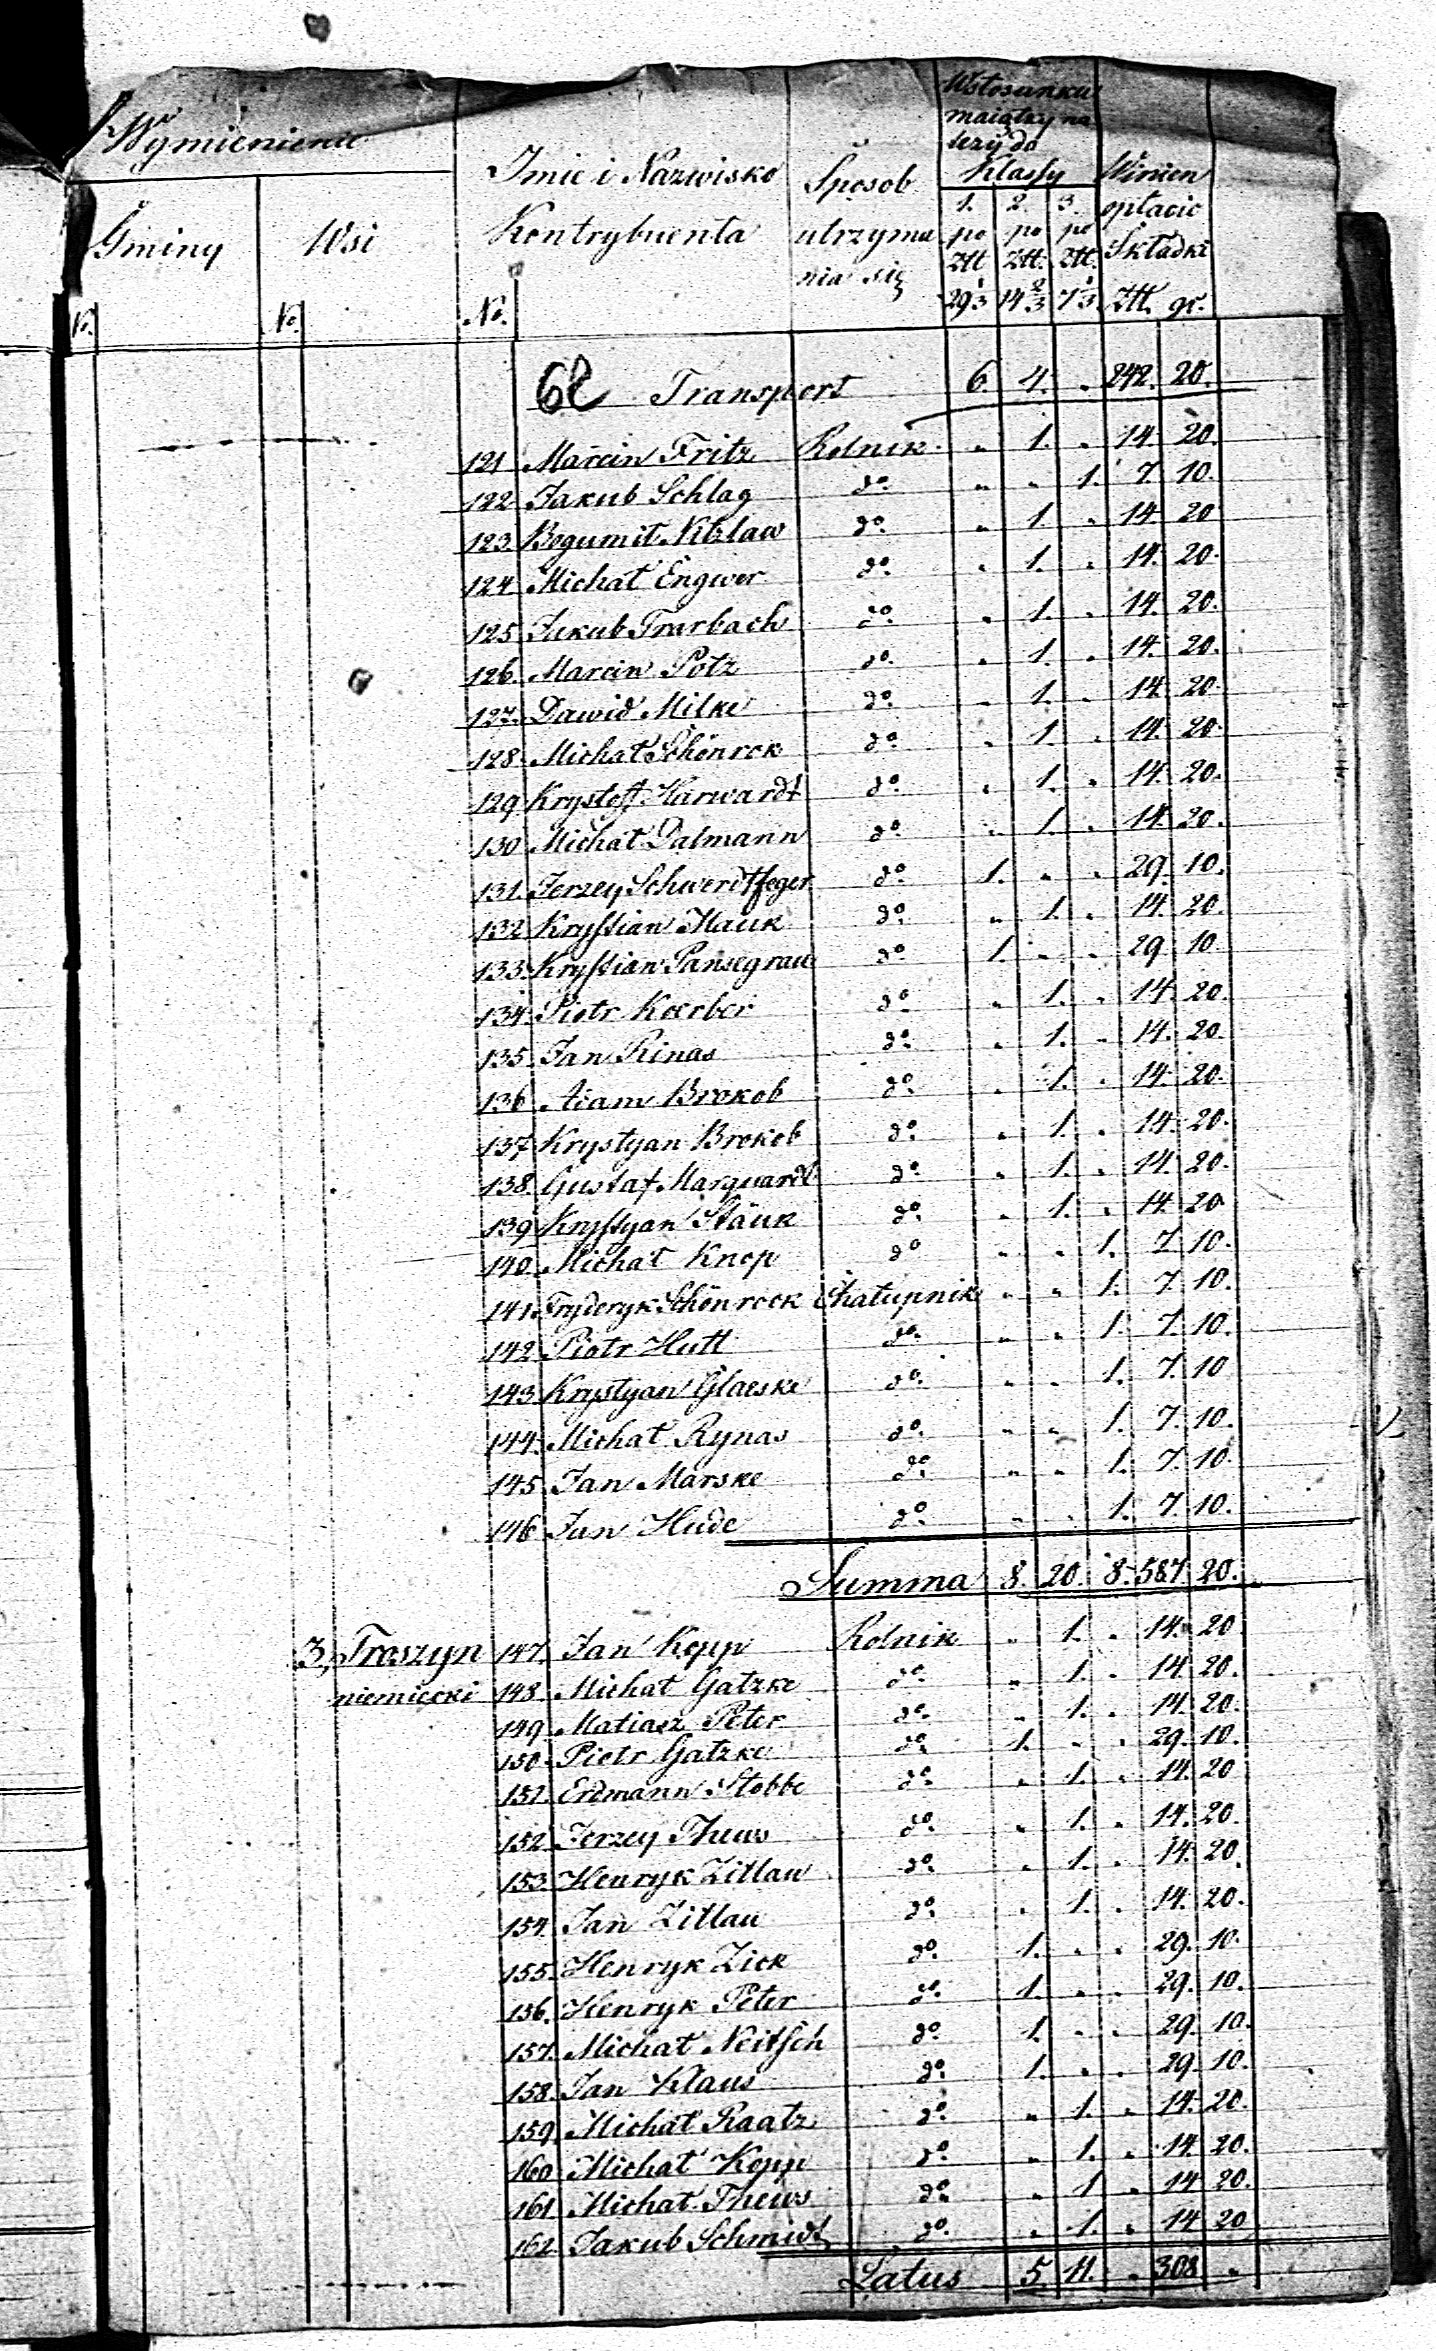 Wymienienie
Gminy
Wsi
Imie i Nazwisko
Kontrybuenta
Sposob
utrzyma
nia się
Wstosunku
maiątky na
leży do
Klassy
1. 2. 3.
po po po
Ztt Ztt. Ztt.
29 1/3 14 2/3 7 1/3
Winien
opłacic
Składki
Ztt. gr.
No. No. No.
62 Transport 6. 4. " 242. 20.
121 Marcin Fritz Rolnik " 1. " 14. 20.
122 Jakub Schlag do. " " 1. 7. 10.
123. Bogumił Nitzlaw do. " 1 " 14. 20
124. Michał Engwer do. " 1. " 14. 20.
125. Jakub Trarbach do. " 1. " 14. 20.
126. Marcin Potz do. " 1. " 14. 20.
127. Dawid Milke do. " 1. " 14. 20
128. Michał Schönrok do. " 1. " 14. 20.
129 Krystoff Harwardt do. " 1. " 14. 20.
130 Michał Dalmann do. " 1. " 14. 20.
131. Jerzey Schwerdtfeger do. 1. " " 29. 10.
132 Kryssian Hauk do. " 1. " 14. 20.
133. Kryssian Pansegrau do. 1. " " 29. 10
134. Piotr Koerber do. " 1. " 14. 20.
135. Jan Rinas do. " 1. " 14. 20.
136 Adam Brokob do. " 1. " 14. 20.
137 Krystyan Brokob do. " 1. " 14. 20.
138. Gustaf Marquardt do. " 1. " 14. 20.
139 Kryssyan Stäuk do. " 1. " 14. 20
140. Michał Knop do " " 1. 7. 10.
141. Fryderyk Schönrock Chałupnik " " 1. 7. 10.
142 Piotr Hutt do. " " 1. 7. 10.
143 Krystyan Glaeske do. " " 1. 7. 10
144. Michał Rynas do. " " 1. 7. 10.
145 Jan Marske do. " " 1. 7. 10.
146 Jan Hude do. " " 1. 7. 10.
Summa 8. 20. 8. 587 20.
3, Troszyn 147. Jan Kopp Rolnik " 1. " 14. 20
niemiecki 148. Michał Gatzke do. " 1. " 14. 20.
149. Matiasz Peter do. " 1. " 14. 20.
150. Piotr Gatzke do. 1. " " 29. 10.
151. Erdmann Stobbe do. " 1. " 14. 20
152. Jerzey Thews do. " 1. " 14. 20.
153. Henryk Zittau do. " 1. " 14. 20.
154. Jan Zittau do. " 1. " 14. 20.
155. Henryk Zick do. 1. " " 29. 10.
156. Henryk Peter do. 1. " " 29. 10.
157. Michał Neitsch do. 1. " " 29. 10.
158. Jan Klaus do. 1. " " 29. 10.
159. Michał Raatz do. " 1. " 14. 20.
160. Michał Kopp do. " 1. " 14. 20.
161. Michał Thews do. " 1 " 14 20.
162. Jakub Schmidt do. " 1. " 14 20
Latus 5. 11. " 308 "